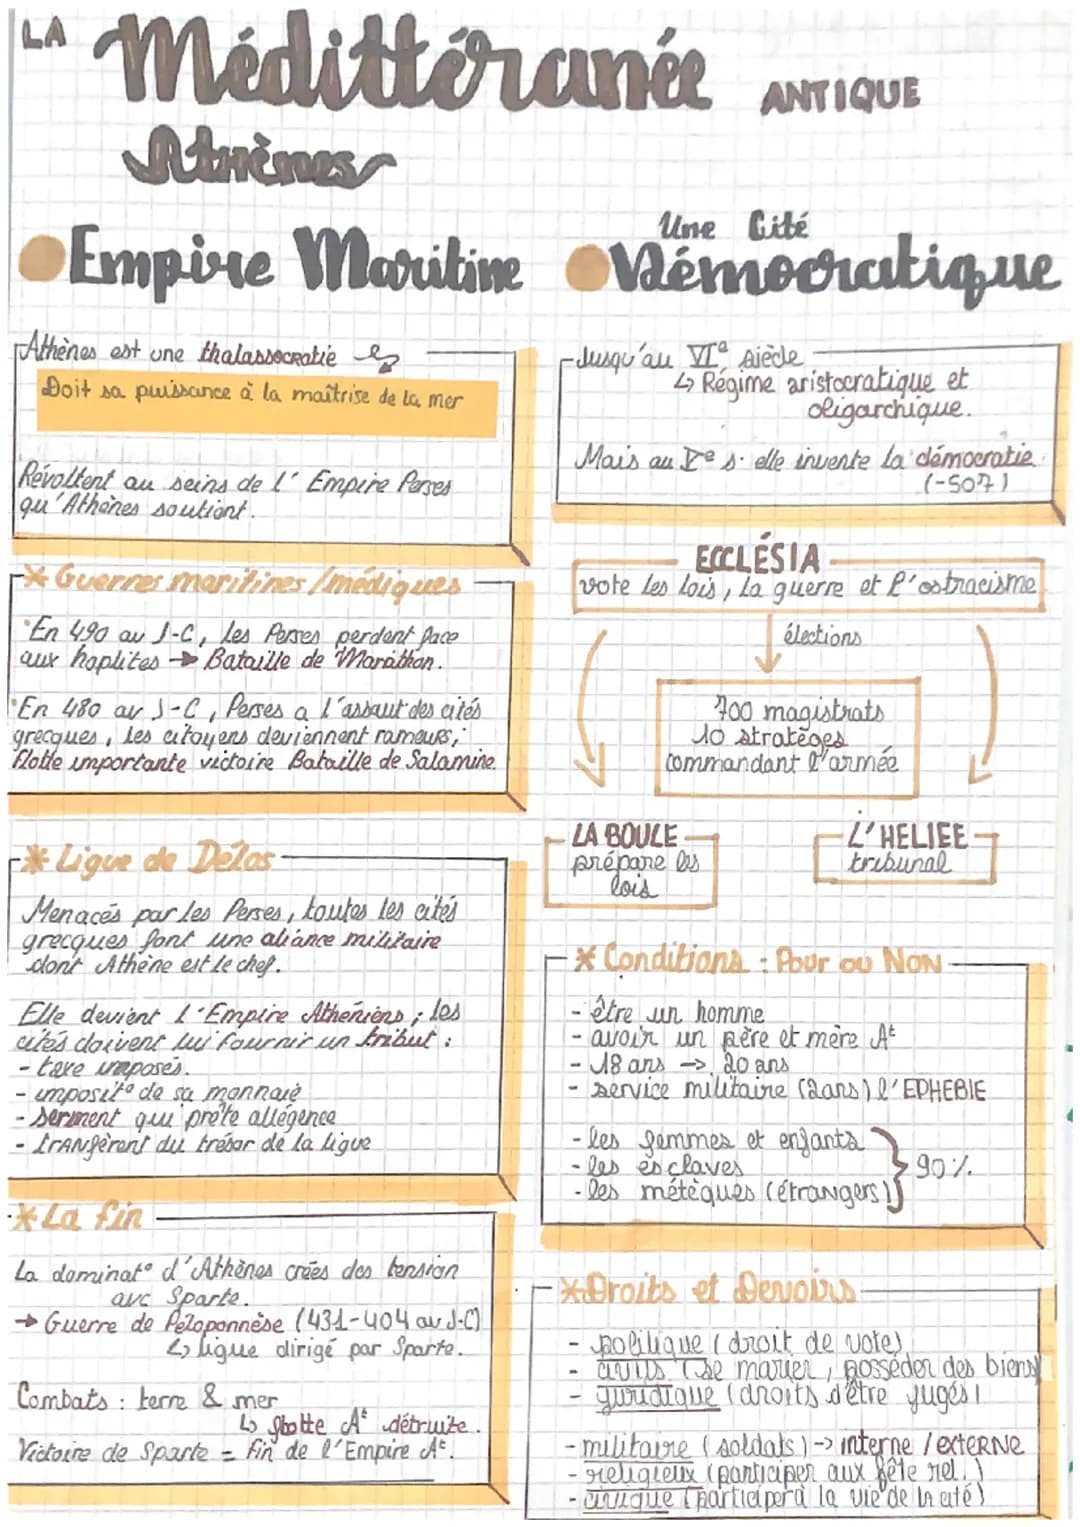 LA Méditterranée ANTIQUE
Athènes
Empire Maritine
Athènes est une thalassocratie
Doit sa puissance à la maîtrise de la mer
Révoltent au seins de l' Empire Perses
qu'Athènes soutient.
* Guerres maritines / médiques
En 490 av J-C, les Perses perdent face
aux hoplites → Bataille de Marathon.
En 480 av J-C, Perses a l'assaut des cités
grecques, les citoyens deviennent rameurs,
flotte importante victoire Bataille de Salamine.
* Ligue de Délos
Menacés par les Perses, toutes les cités
grecques font une aliance militaire
dont Athène est le chef.
Elle devient l'Empire Athéniens ; les
cités doivent lui fournir un tribut :
- taxe imposés.
- imposit° de sa monnaie
- serment qui prête allégence
- trANsfèrent du trésor de la ligue
* La fin
La dominat° d'Athènes crées des tension
avc Sparte.
→ Guerre de Péloponnèse (431-404 av J-C)
↳ ligue dirigé par Sparte.
Combats : terre & mer
↳ flotte At détruite.
Victoire de Sparte = fin de l'Empire At.
Une Cité
Démocratique
Jusqu'au VIe siècle
↳ Régime aristocratique et
oligarchique.
Mais au Ve s. elle invente la démocratie
(-507)
ECCLÉSIA
vote les lois, la guerre et l'ostracisme
élections
700 magistrats
10 stratèges
commandant l'armée
LA BOULE
prépare les
lois
L'HELIEE
tribunal
* Conditions : Pour ou NON
- être un homme
- avoir un père et mère At
- 18 ans → 20 ans
- service militaire (2ans) l'EPHEBIE
- les femmes et enfants
- les esclaves
- les métèques (étrangers)
90%
* Droits et Devoirs
- politique (droit de votes)
- civils (se marier, posséder des biens)
- juridique (droits d'être jugés)
- militaire (soldats) → interne / exTERNE
- religieux (participer aux fête rel.)
- civique (participer à la vie de la cité)